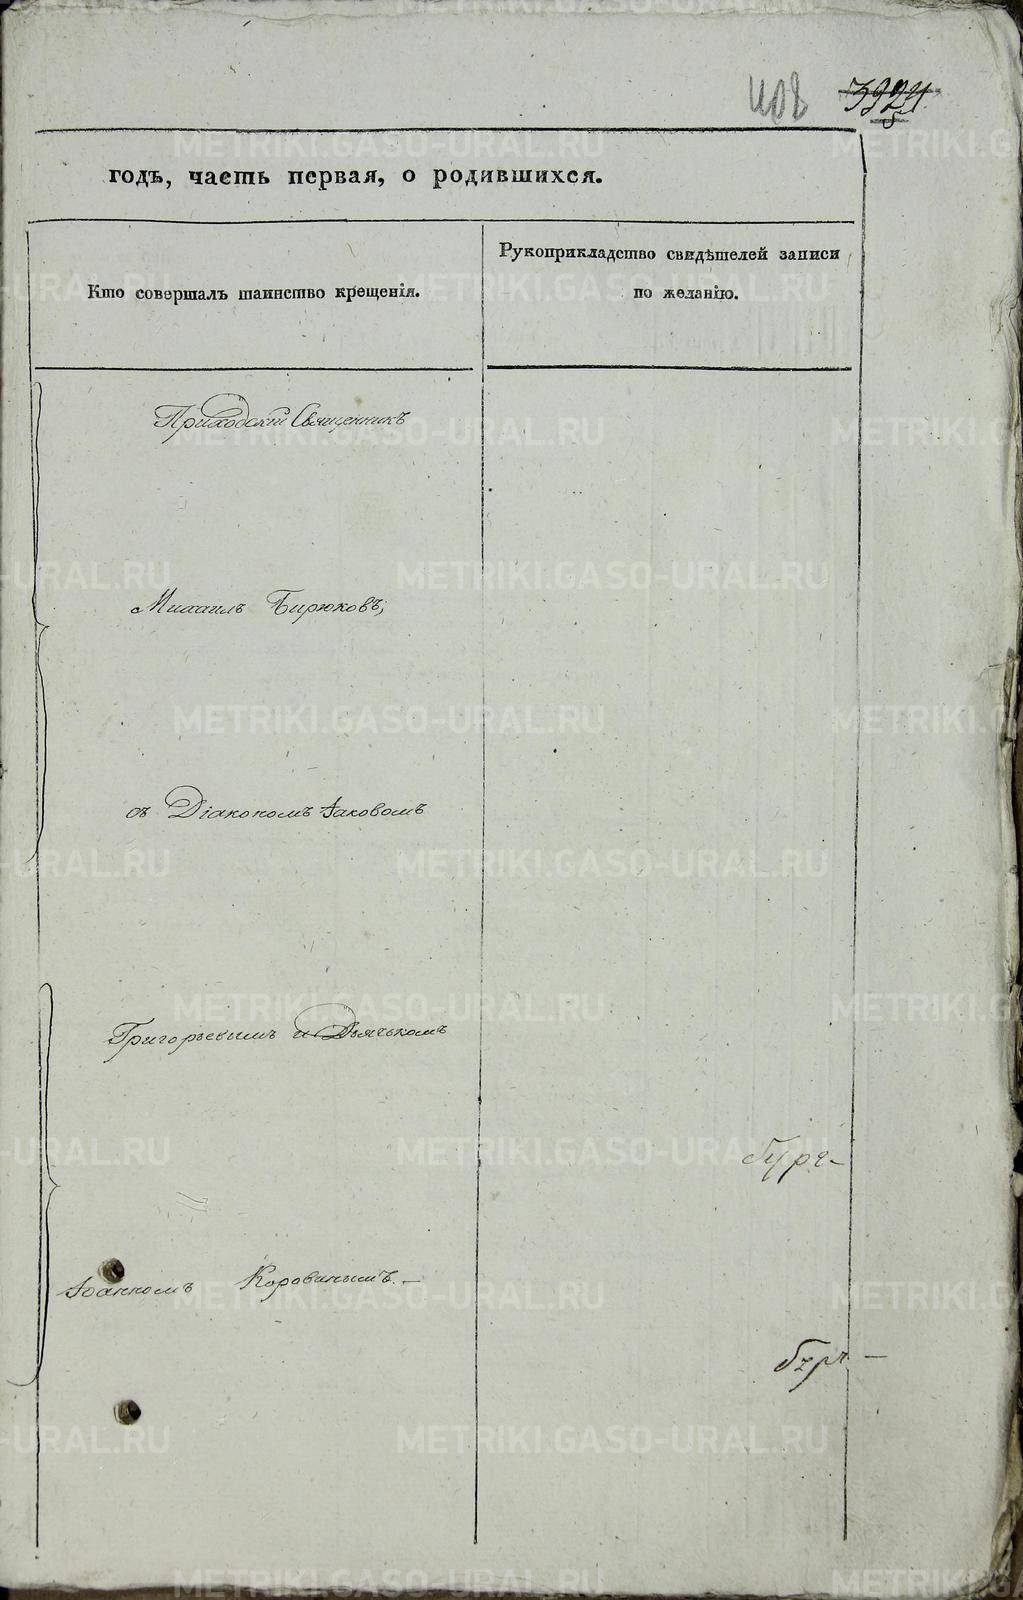 408 3924
годъ, часть первая, о родившихся.
Кто совершалъ таинство крещенія.
Рукоприкладство свидѣтелей записи
по желанію.
Приходскій Священникъ
Михаилъ Бирюковъ,
съ Діакономъ Іаковомъ
Григорьевымъ и Дьячькомъ
Іоанномъ Коровинымъ. –
METRIKI.GASO-URAL.RU